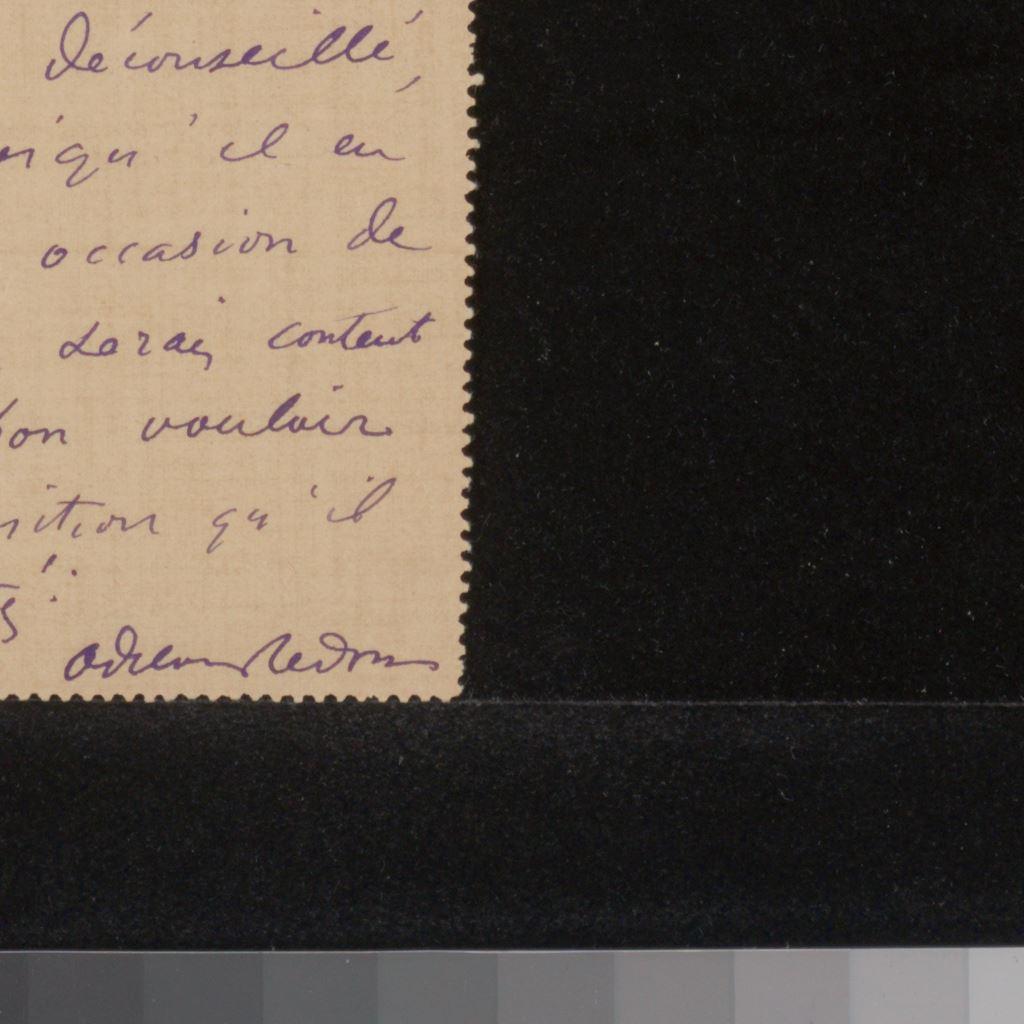 déconseillé,
qu'il en
occasion de
serais content
bon vouloir
sition qu'il
Odilon Redon